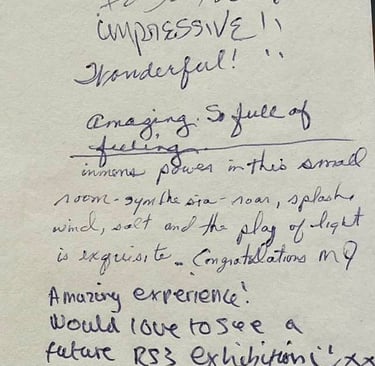 impressive!!
Wonderful! !!
Amazing. So full of
feeling
inmens power in this small
room - synthesia - roar, splash,
wind, salt and the play of light
is exquisite - Congratulations
Amazing experience!
Would love to see a
future RS3 exhibition! xx